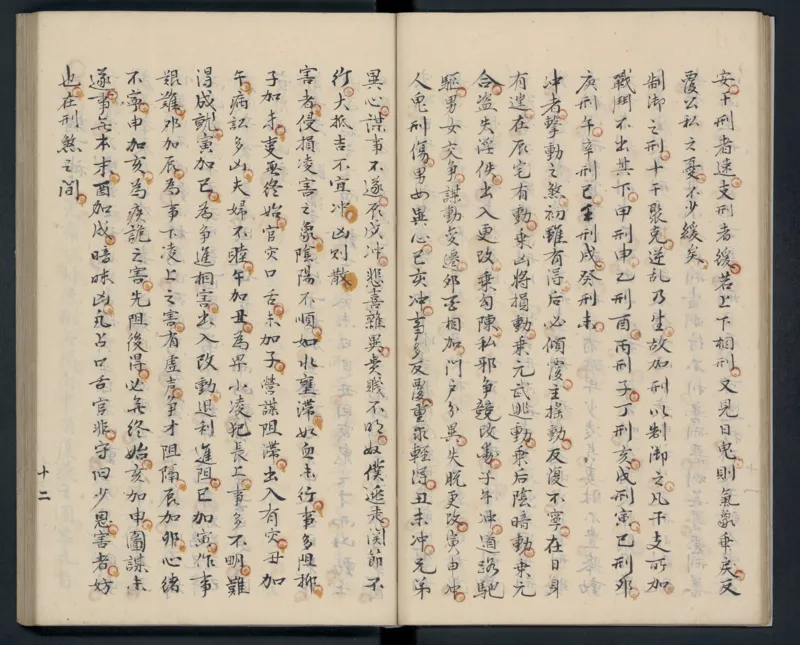 安十刑者速支刑者緩若上下相刑又見日鬼則氣象乖戾反
覆公私之憂不少緩矣
制御之刑十干聚克逆乱乃生故加刑以制御之凡干支所加
戰鬥不出其下甲刑申乙刑酉丙刑子丁刑亥戊刑寅己刑卯
庚刑午辛刑巳壬刑戌癸刑未
冲者擊動之煞初雖有得后必傾覆主摇動反復不寧在日身
有遷在辰宅有動乗凶将損動乗元武逃動乗后陰暗動乗元
合盗失淫佚出入更改乗勾陳私邪争競改動子午冲道路馳
驅男女交争謀動变遷卯酉相加門户分異失脱更改寅申冲
人鬼刑傷男女異心巳亥冲事多反覆重求輕得丑未冲兄弟
異心謀事不遂辰戌冲悲喜雜異貴賤不明奴僕逃走関節不
行大抵吉不宜冲凶則散
害者侵損凌害之象陰陽不順如水壅滞如血未行事多阻抑
子加未吏無終始官灾口舌未加子營謀阻滞出入有灾丑加
午病訟多凶夫婦不睦午加丑為卑小凌犯長上事多不明難
得成就寅加巳為争進相害出入改動退利進阻巳加寅作事
艱難卯加辰為事下凌上之害有虚声争才阻隔辰加卯心緒
不寧申加亥為疾詭之害先阻後得必無終始亥加申圖謀未
遂事無本末酉加戌暗昧凶凡占口舌官非守旧少恩害者妨
也在刑煞之间
十二